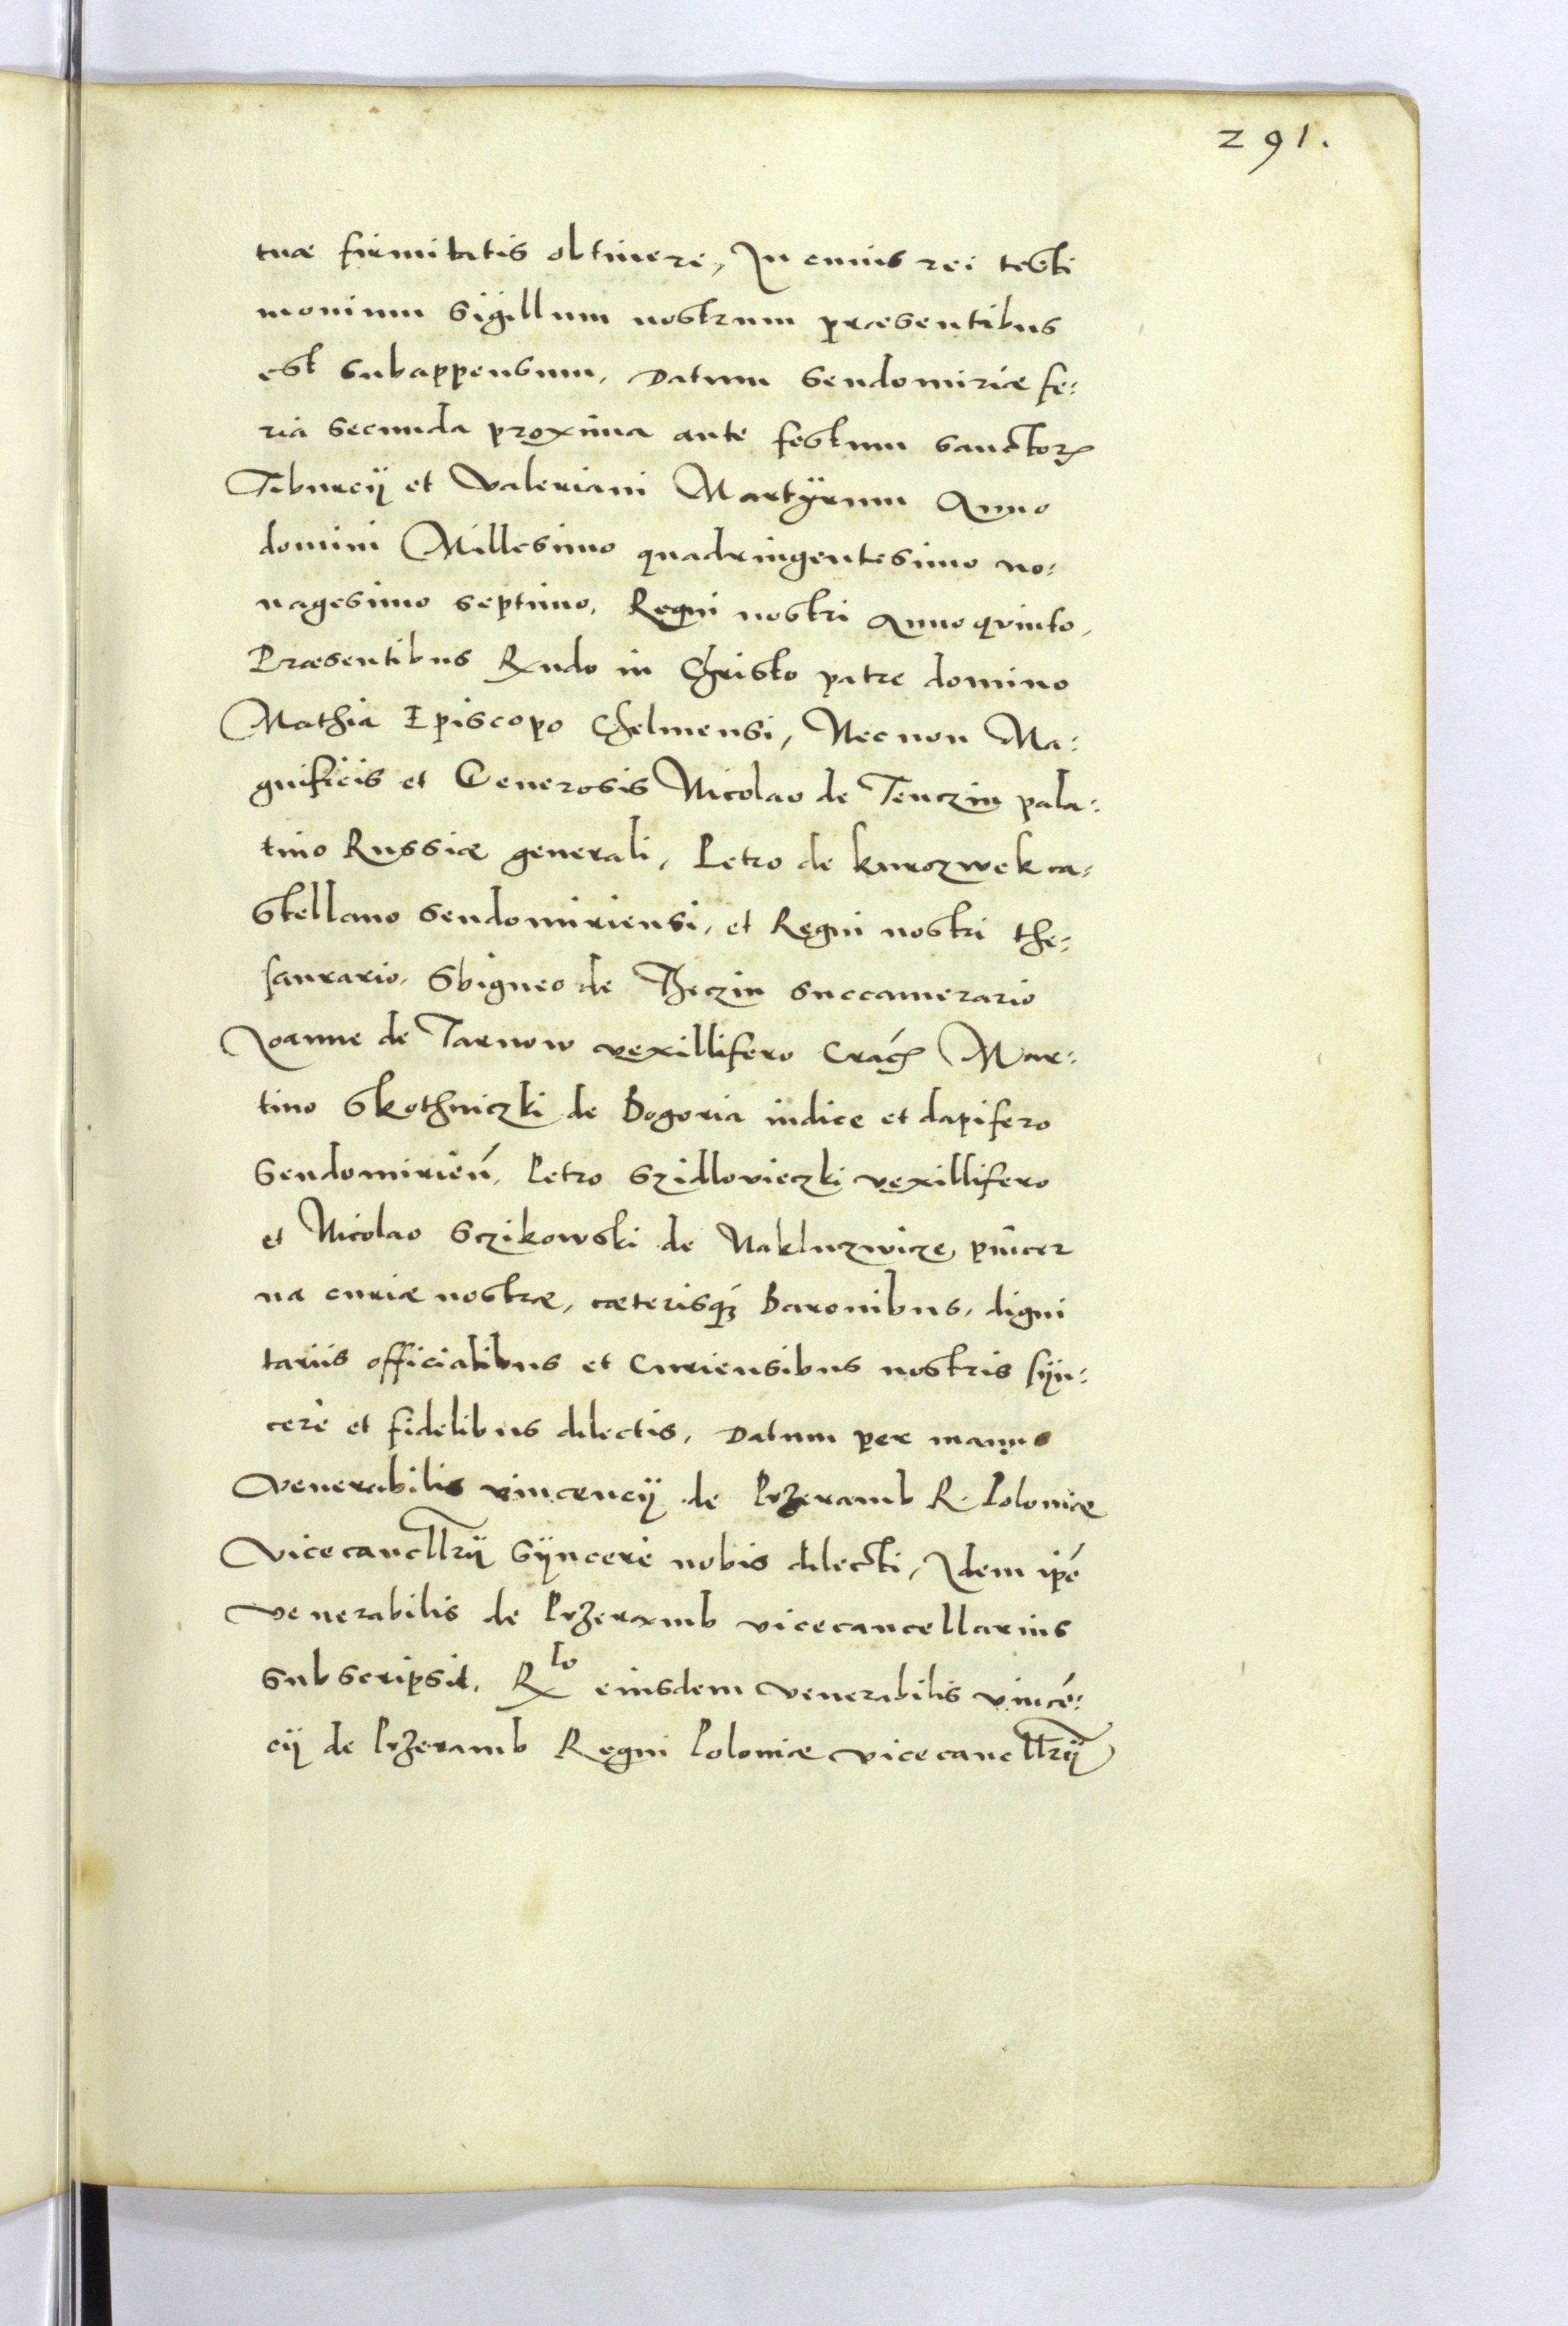 291.
tuæ firmitatis obtinere, In cuius rei testi
monium sigillum nostrum præsentibus
est subappensum. Datum Sendomiriæ fe:
ria secunda proxima ante festum sanctorꝝ
Tiburcÿ et Valeriani Martÿrum Anno
domini Millesimo quadringentesimo no:
nagesimo septimo. Regni nostri Anno quinto.
Præsentibus Rndo in Christo patre domino
Mathia Episcopo Chelmensi, Nec non Ma:
gnificis et Generosis Nicolao de Tenczin pala:
tino Russiæ generali, Petro de kurozwek ca:
stellano Sendomiriensi, et Regni nostri the:
saurario. Sbigneo de Theczin succamerario
Joanne de Tarnow vexillifero Cracꝝ Mar:
tino Skothniczki de Bogoria iudice et dapifero
Sendomirien̄. Petro Szidlovieczki vexillifero
et Nicolao Sczikowski de Nakluzwicze pincer
na curiæ nostræ, cæterisqꝫ Baronibus, digni
tariis officialibus et Curiensibus nostris sÿn:
cerè et fidelibus dilectis. Datum per manus
Venerabilis vincencÿ de Przeramb R. Poloniæ
Vicecancllrÿ Sÿncerè nobis dilecti, Idem ipē
Venerabilis de Przeramb vicecancellarius
subscripsit. Rlo eiusdem Venerabilis vincē:
cÿ de Przeramb Regni Poloniæ vicecancllrÿ